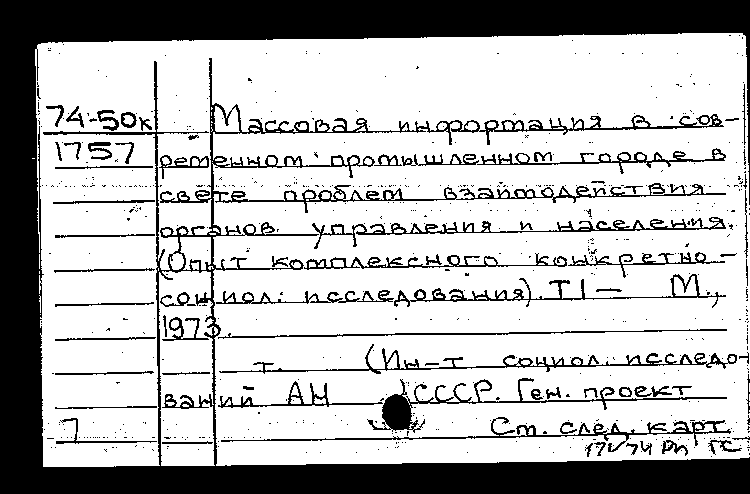 74-50к Массовая информация в сов-
1757 ременном промышленном городе в
свете проблем взаимодействия
органов управления и населения.
(Опыт комплексного конкретно-
социол. исследования). Т I — М.,
1973.
т. (Ин-т социол. исследо-
ваний АН СССР. Ген. проект
7 См. след. карт.